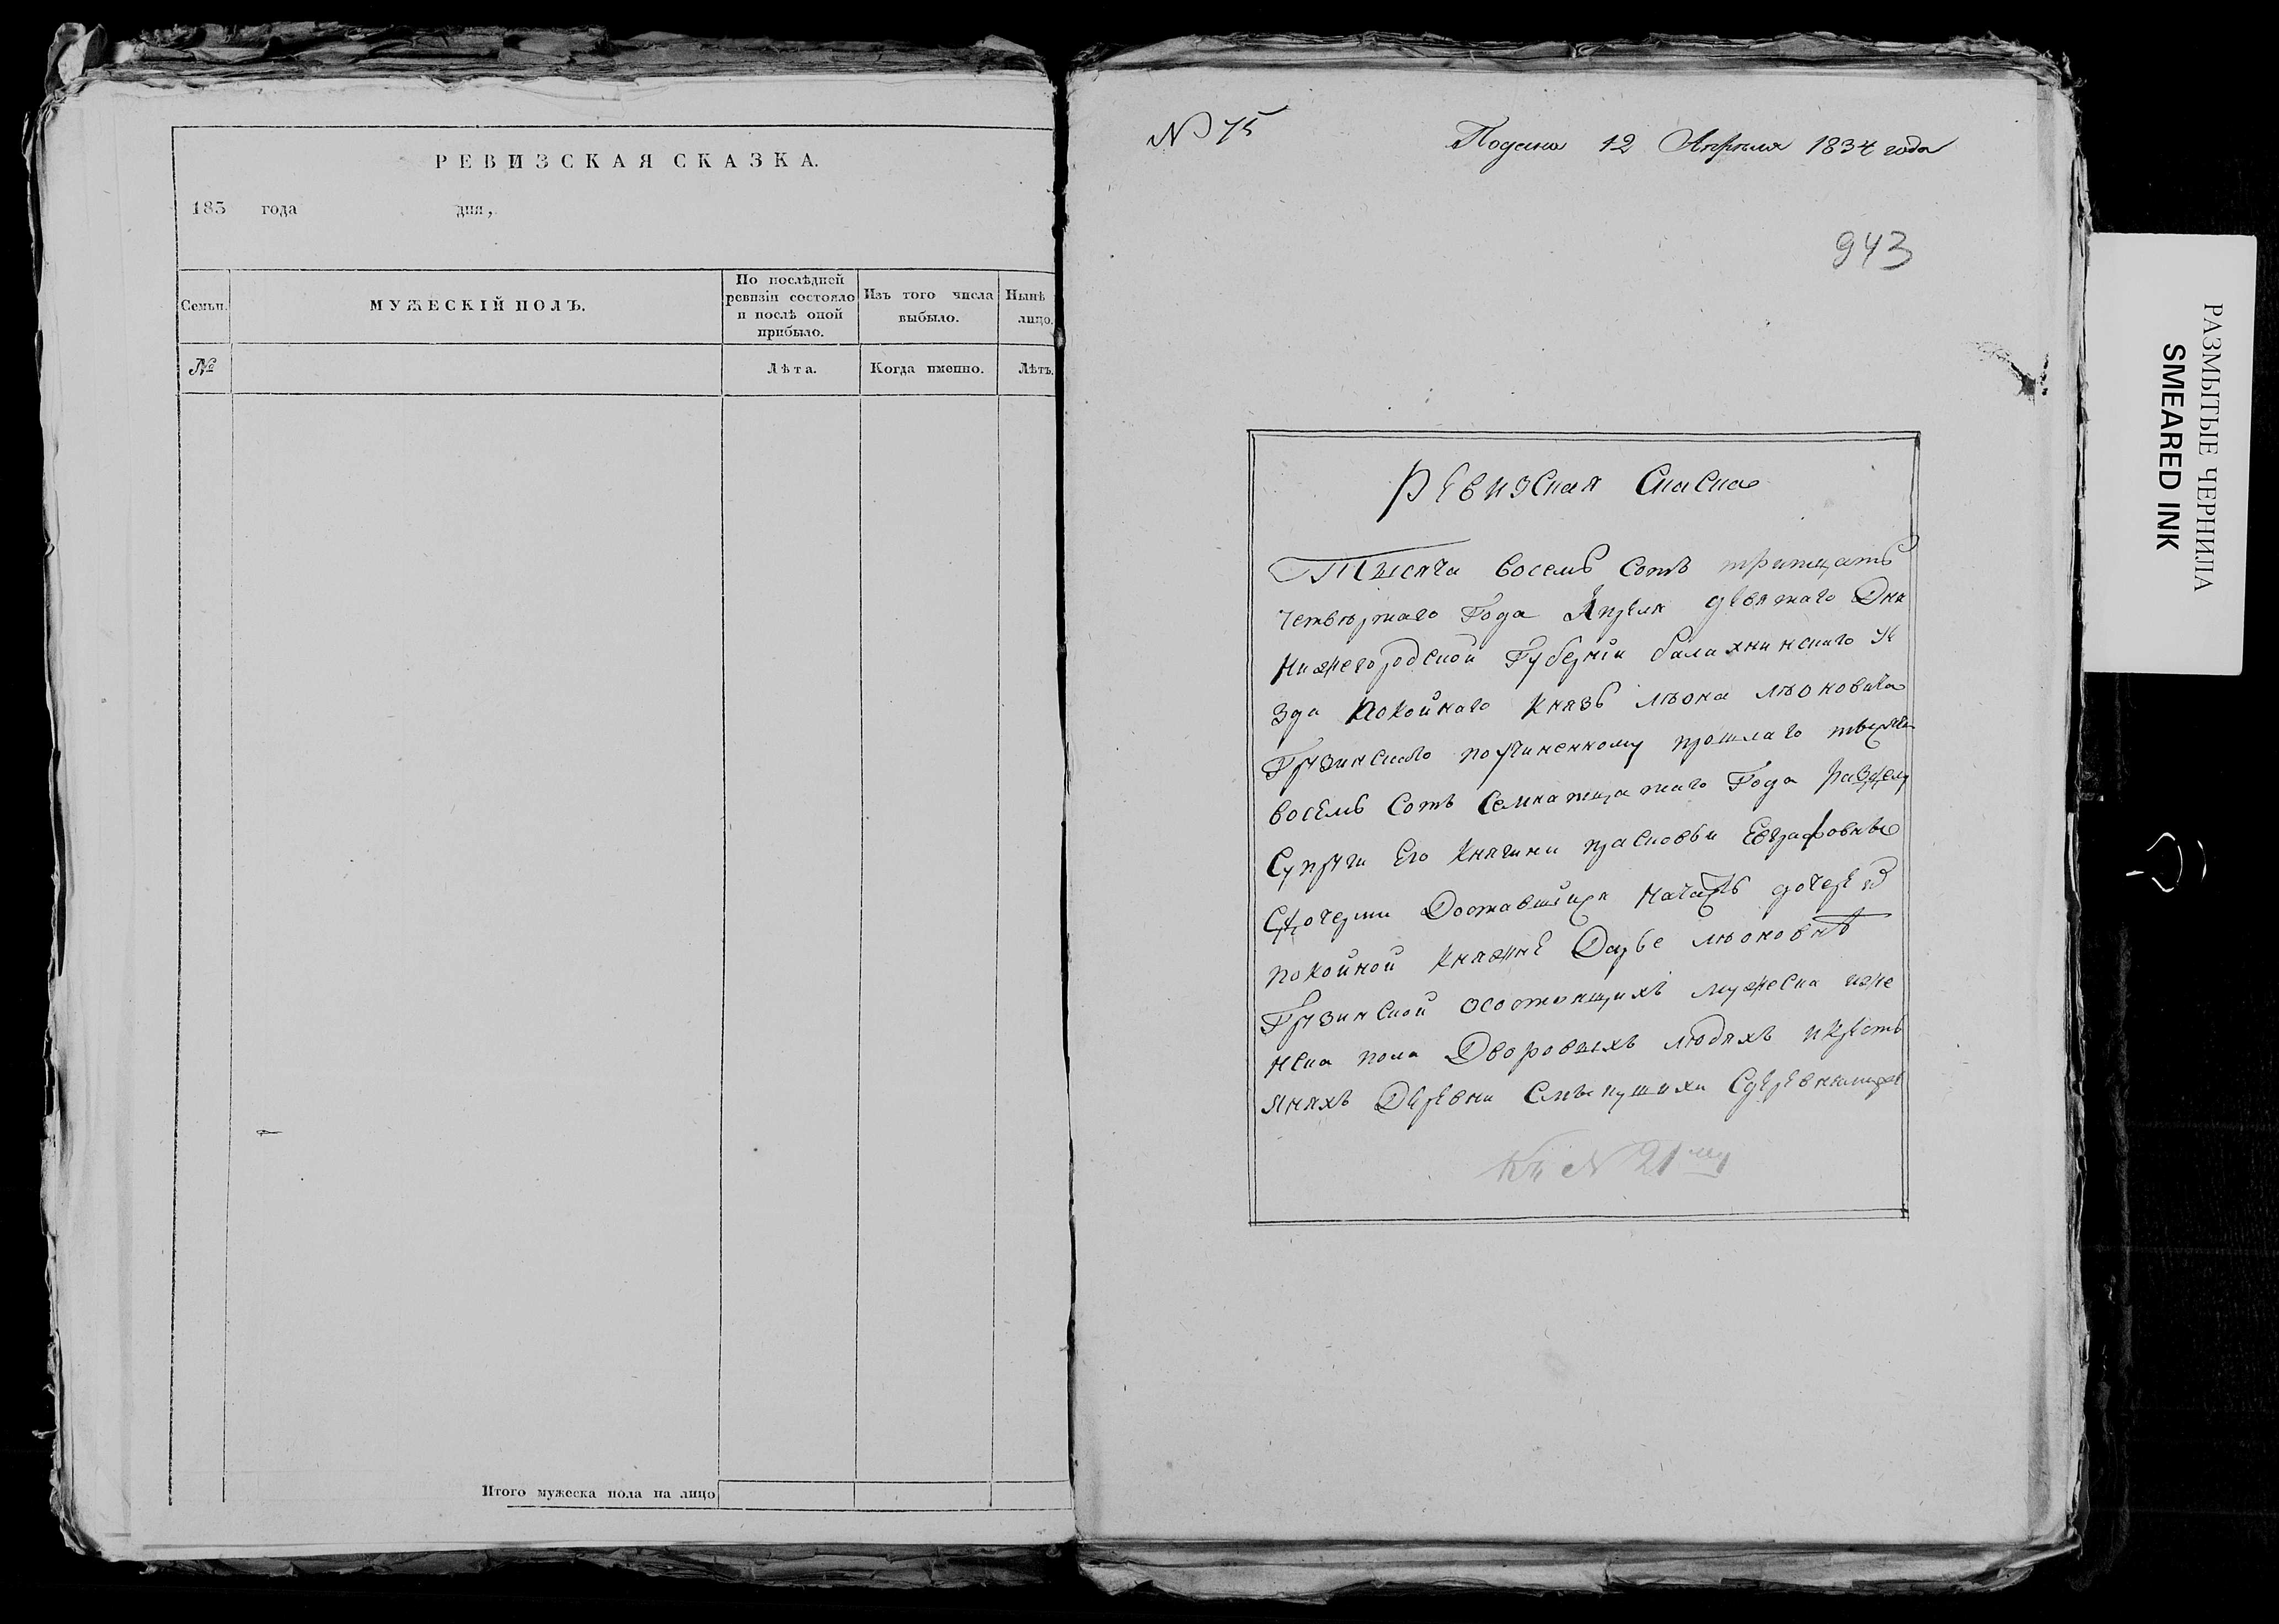 РЕВИЗСКАЯ СКАЗКА.
183 года дня,
Семьи.
МУЖЕСКІЙ ПОЛЪ.
По послѣдней
ревизіи состояло
и послѣ оной
прибыло.
Изъ того числа
выбыло.
Нынѣ
лицо.
№
Лѣта.
Когда именно.
Лѣтъ.
Итого мужеска пола на лицо
N 75
Подана 12 Апреля 1834 года
943
Ревизская Скаска
Тысяча восемь сотъ тритцать
четвертаго Года Апреля девятаго Дня
Нижегородской Губерніи балахнинскаго уе
зда покойнаго Князь
Грузинскаго поучиненному прошлаго
восемь сотъ Семнатцатаго Года разделу
Супруги Его Княгини прасковьи Евграфовны
Сдочерми Доставшихся начасть дочерей
покойной Княжне Дарье
Грузинской осостоящихъ мужеска иже
нска пола Дворовыхъ людяхъ икресть
янахъ Деревни Сдеревнями
Къ N 21му
РАЗМЫТЫЕ ЧЕРНИЛА
SMEARED INK